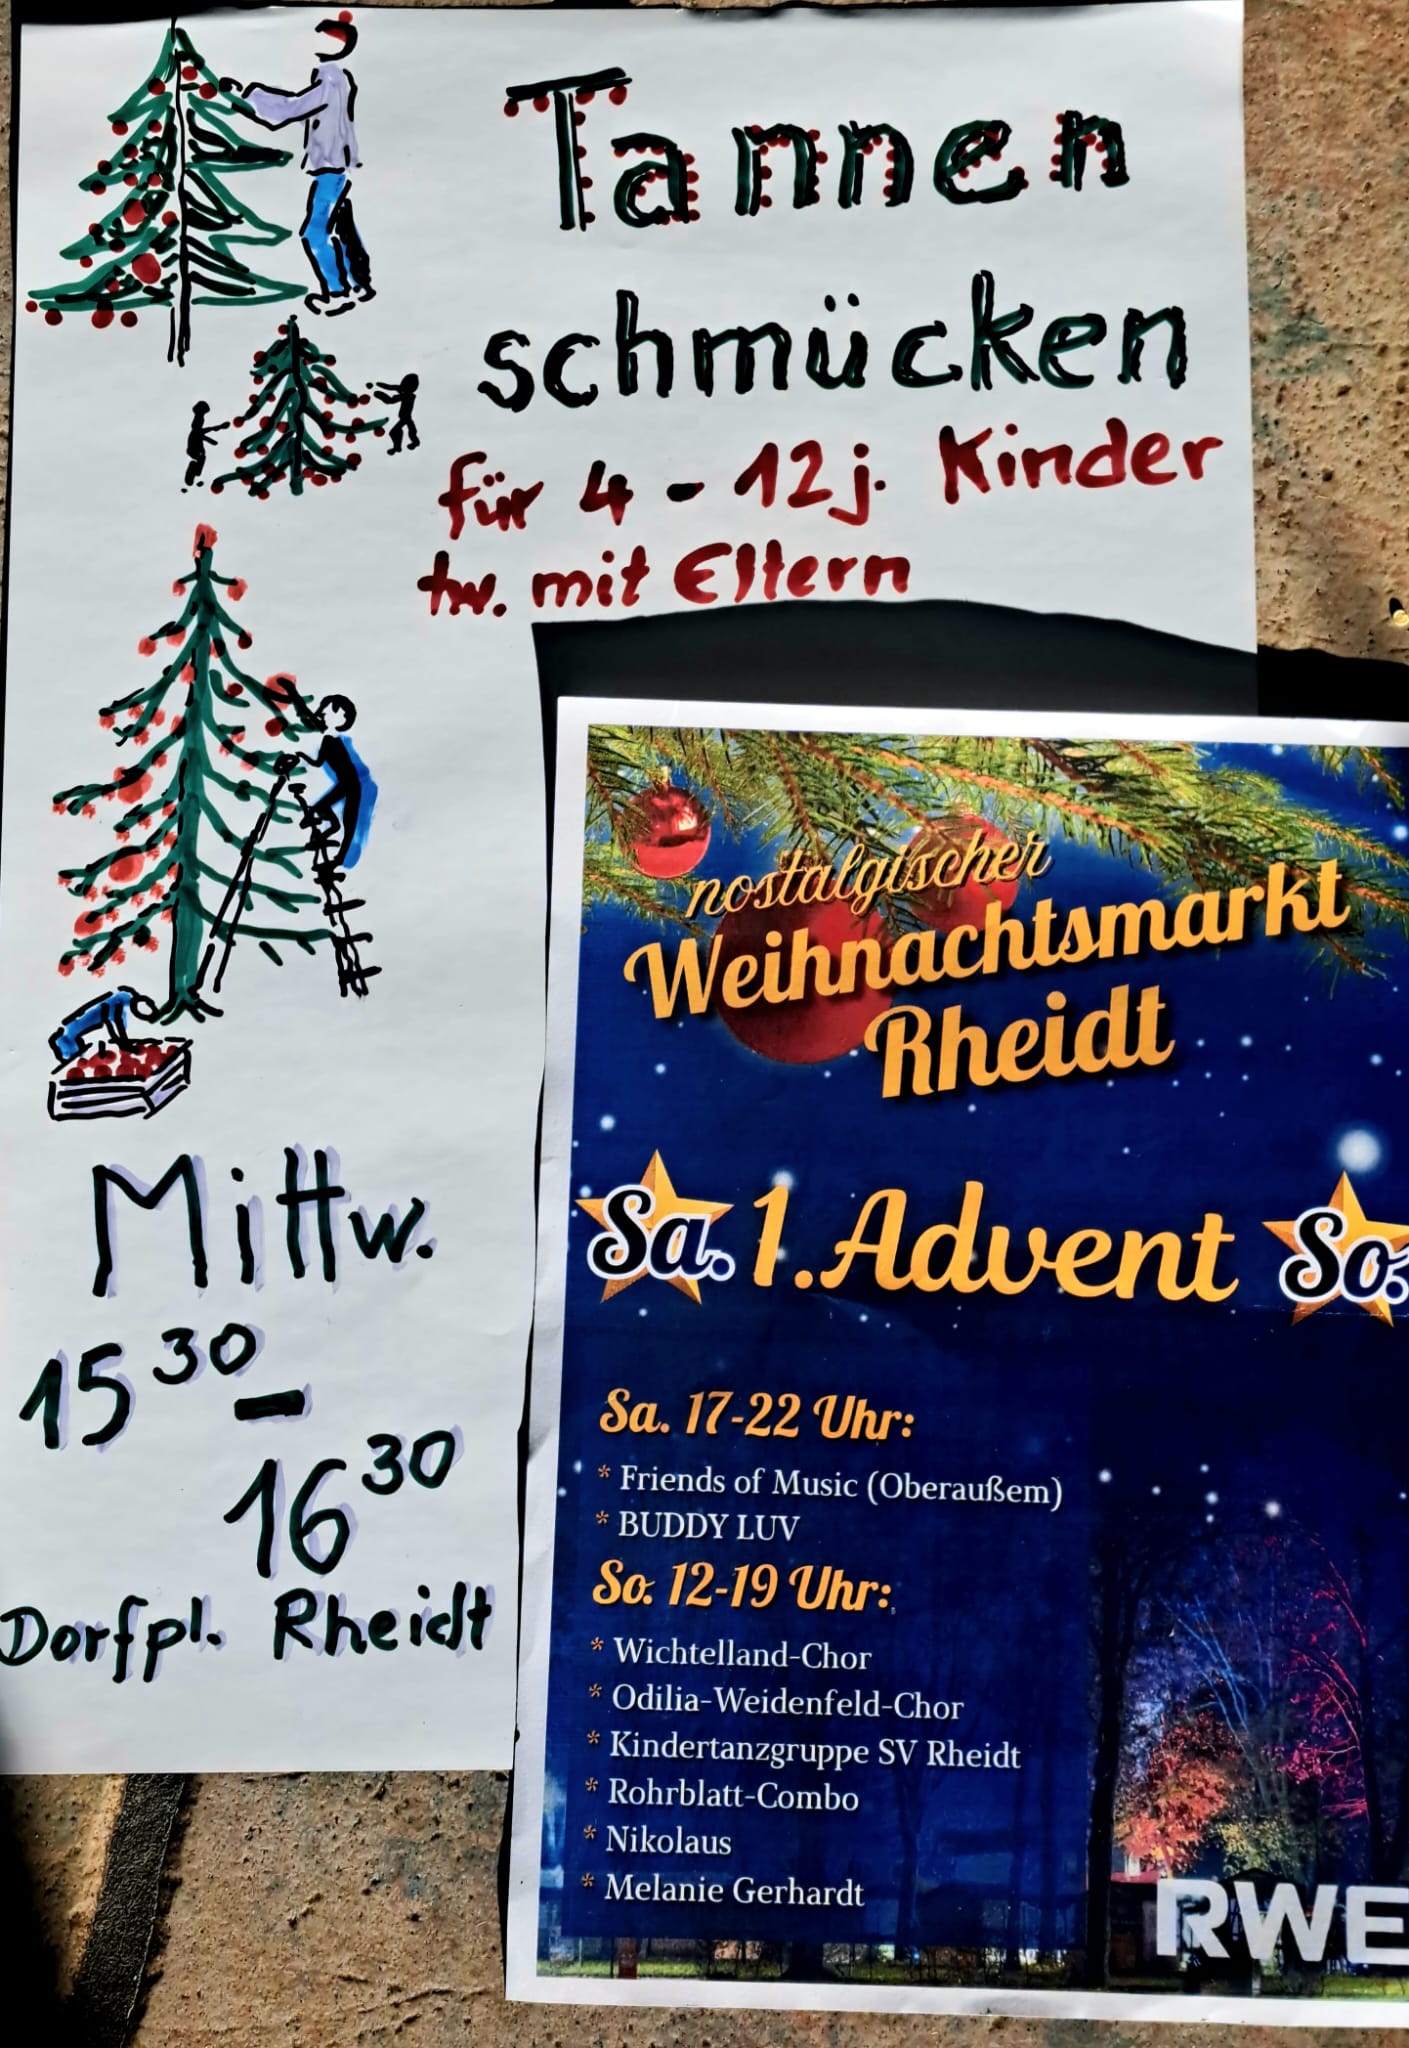 Tannen
schmücken
für 4 - 12j. Kinder
tw. mit Eltern
Mittw.
15 30 -
16 30
Dorfpl. Rheidt
nostalgischer
Weihnachtsmarkt
Rheidt
Sa. 1. Advent So.
Sa. 17-22 Uhr:
* Friends of Music (Oberaußem)
* BUDDY LUV
So. 12-19 Uhr:
* Wichtelland-Chor
* Odilia-Weidenfeld-Chor
* Kindertanzgruppe SV Rheidt
* Rohrblatt-Combo
* Nikolaus
* Melanie Gerhardt
RWE